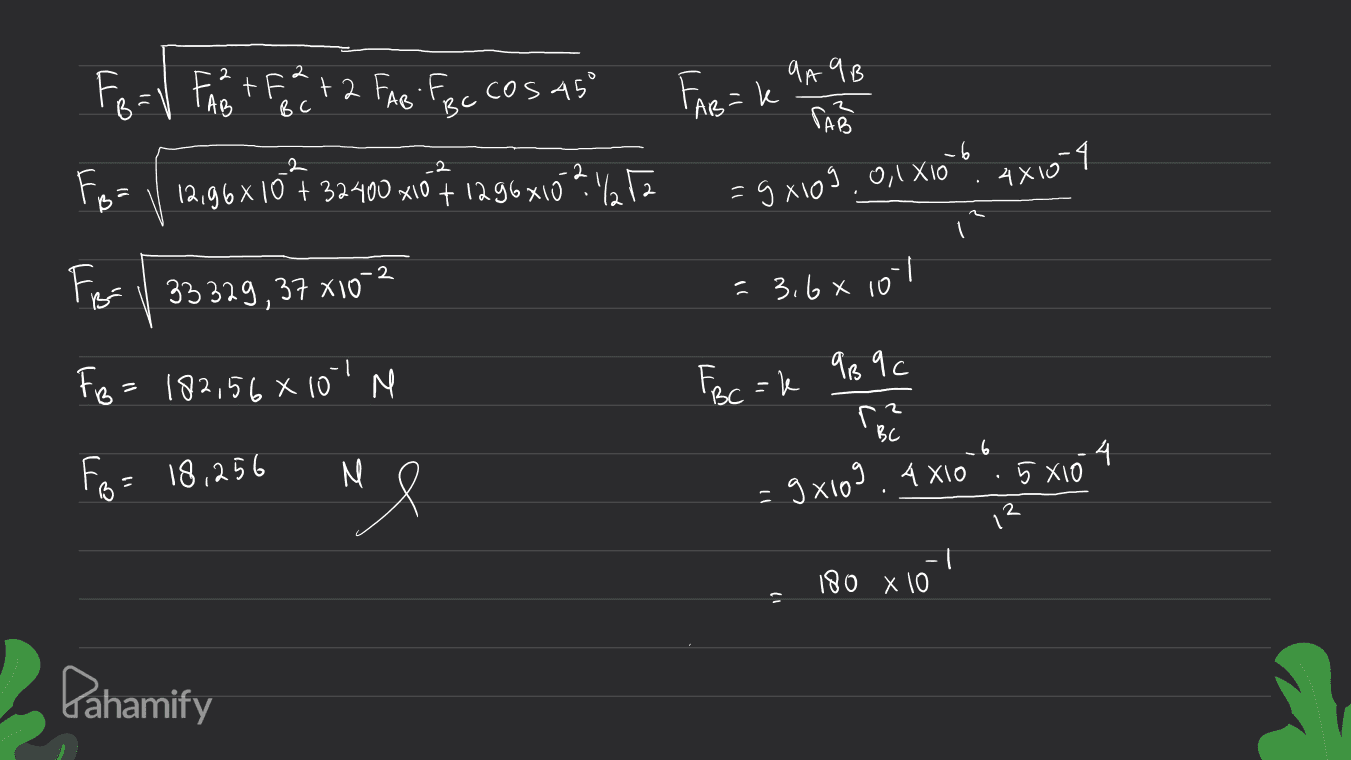 F_B = √(F_AB² + F_BC² + 2 F_AB · F_BC cos 45°)
F_B = √(12,96 x 10⁻² + 32400 x10⁻² + 1296 x10⁻² · ½√2)
F_B = √(33329,37 x10⁻²)
F_B = 182,56 x 10⁻¹ N
F_B = 18,256 N
F_AB = k q_A q_B / r_AB²
= 9 x10⁹ . 0,1 x10⁻⁶ . 4x10⁻⁴ / 1²
= 3,6 x 10⁻¹
F_BC = k q_B q_C / r_BC²
= 9x10⁹ . 4 x10⁻⁶ . 5 x10⁻⁴ / 1²
= 180 x 10⁻¹
Pahamify